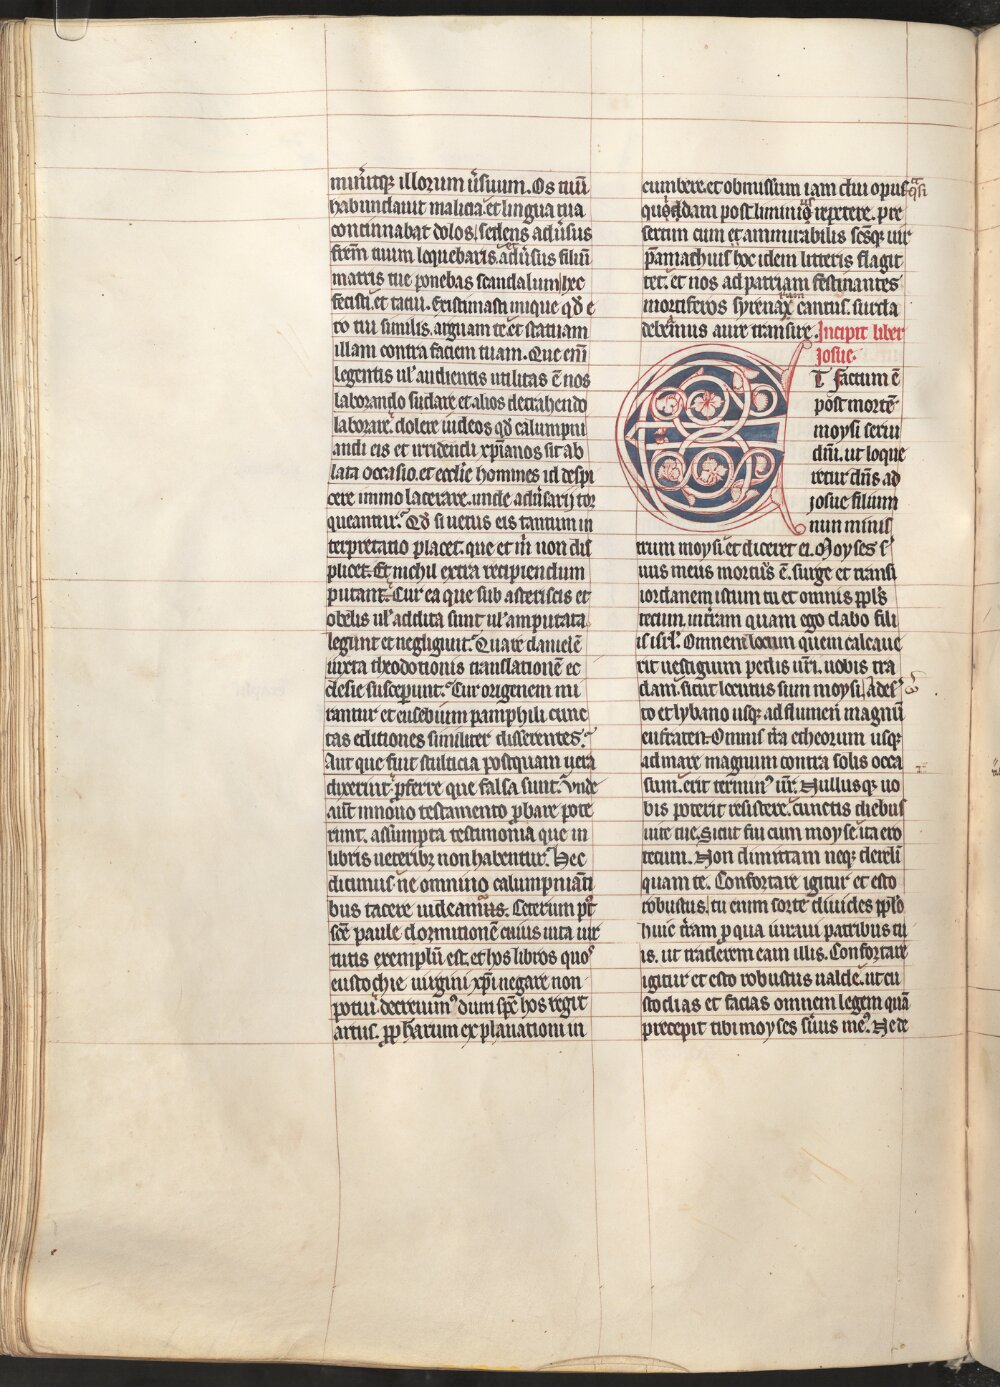 minꝰitqꝫ illorum ūsuum. Os tuū
habundauit malicia. et lingua tua
continnabat dolos. sedens adūsus
frēm tuum loquebaris. adūsus filiū
matris tue ponebas scandalum hec
fecisti. et tacui. Existimasti inique qđ e
ro tui similis. arguam te. et statuam
illam contra faciem tuam. Que enī
legentis ul' audientis utilitas ē nos
laborando sudare et alios detrahendo
laborare. dolere iudeos qđ calumpni
andi eis et irridendi xp̄ianos sit ab
lata occasio. et eccl̄ie homines id despi
cere immo lacerare. unde adūsarij tor
queantur. Qđ si uetus eis tantum in
terpretatio placet. que et m̄ non dis
plicet. Et nichil extra recipiendum
putant. Cur ea que sub asteriscis et
obelis ul' addita sunt ul' amputata
legunt et negligunt. Quare danielē
iuxta theodotionis translationē ec
clesie susceperunt. Cur origenem mi
rantur et eusebium pamphili cunc
tas editiones similiter disserentes.
Aut que fuit stulticia postquam uera
dixerint p̄ferre que falsa sunt. Vnde
aut̄ in nouo testamento p̱bare pote
runt. assumpta testimonia que in
libris ueteribꝫ non habentur. Hec
dicimus ne omnino calumpniāti
bus tacere uideamus. Ceterum pꝰt
sc̄e paule dormitionē cuius uita uir
tutis exemplū est. et hos libros quoˢ
eustochie uirgini xp̄i negare non
potui decreuimꝰ dum sp̄c hos regit
artus. ꝓphetarum explanationi in
cumbere. et obmissum iam diu opus qͣsi
quodam post liminio repetere. pre
sertim cum et ammirabilis sc̄sqꝫ uir
pāmachius hoc idem litteris flagit
tet. et nos ad patriam festinantes
mortiferos syrenarum cantus. surda
debemus aure transire. Incipit liber
Josue.
Et factum ē
post mortē
moysi serui
dn̄i. ut loque
retur dn̄s ad
josue filium
nun minis
trum moysi. et diceret ei. Moyses s̄
uus meus mortuus ē. surge et transi
iordanem istum tu et omnis pp̄ls
tecum. in terram quam ego dabo fili
is isrl̄. Omnem locum quem calcaue
rit uestigium pedis ur̄i. uobis tra
dam. sicut locutus sum moysi. A des
to et lybano usqꝫ ad flumen magnū
eufraten. Omnis tr̄a etheorum usqꝫ
ad mare magnum contra solis occa
sum. erit terminꝰ ur̄. Nullusqꝫ uo
bis poterit resistere. cunctis diebus
uite tue. Sicut fui cum moyse. ita ero
tecum. Non dimittam neqꝫ dereli
quam te. Confortare igitur et esto
robustus. tu enim sorte diuides pp̄lo
huic tr̄am ꝓ qua iuraui patribus tu
is. ut traderem eam illis. Confortare
igitur et esto robustus ualde. ut cu
stodias et facias omnem legem quā
precepit tibi moyses s̄uus meꝰ. Ne de